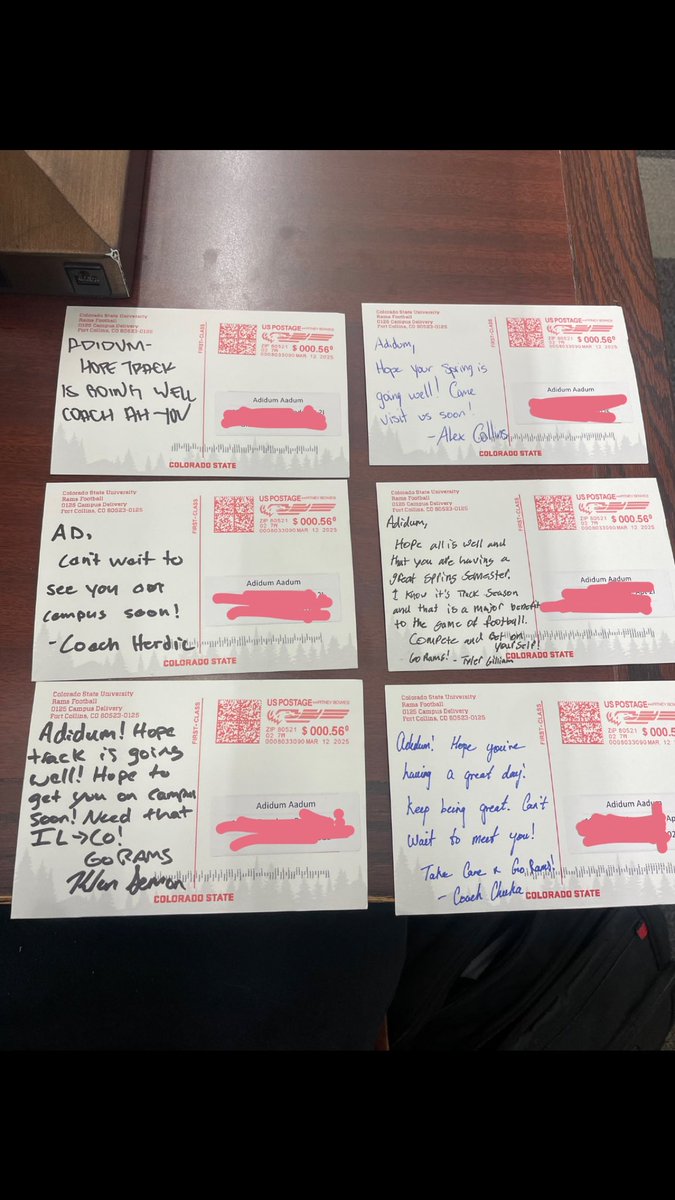 Colorado State University
Rams Football
0126 Campus Delivery
Fort Collins, CO 80523-0126
FIRST-CLASS
US POSTAGE PITNEY BOWES
ZIP 80521
02 7W
$ 000.56⁰
0008033090 MAR 12 2025
ADIDUM-
HOPE TRACK
IS GOING WELL
COACH AH-YOU
Adidum Aadum
COLORADO STATE
Colorado State University
Rams Football
0126 Campus Delivery
Fort Collins, CO 80523-0126
FIRST-CLASS
US POSTAGE PITNEY BOWES
ZIP 80521
02 7W
$ 000.56⁰
0008033090 MAR 12 2025
Adidum,
Hope your Spring is
going well! Come
visit us soon!
- Alex Collins
Adidum Aadum
COLORADO STATE
Colorado State University
Rams Football
0126 Campus Delivery
Fort Collins, CO 80523-0126
FIRST-CLASS
US POSTAGE PITNEY BOWES
ZIP 80521
02 7W
$ 000.56⁰
0008033090 MAR 12 2025
AD,
Can't wait to
see you on
campus soon!
- Coach Herdic
Adidum Aadum
COLORADO STATE
Colorado State University
Rams Football
0126 Campus Delivery
Fort Collins, CO 80523-0126
FIRST-CLASS
US POSTAGE PITNEY BOWES
ZIP 80521
02 7W
$ 000.56⁰
0008033090 MAR 12 2025
Adidum,
Hope all is well and
that you are having a
great Spring Semester.
I know it's Track Season
and that is a major benefit
to the game of football.
Compete and Bet on
yourself!
Go Rams! - Tyler Gilliam
Adidum Aadum
COLORADO STATE
Colorado State University
Rams Football
0125 Campus Delivery
Fort Collins, CO 80523-0125
FIRST-CLASS
US POSTAGE PITNEY BOWES
ZIP 80521
02 7W
$ 000.56⁰
0008033090 MAR 12 2025
Adidum! Hope
track is going
well! Hope to
get you on campus
soon! Need that
IL→CO!
GO RAMS
Adidum Aadum
COLORADO STATE
Colorado State University
Rams Football
0125 Campus Delivery
Fort Collins, CO 80523-0125
FIRST-CLASS
US POSTAGE PITNEY BOWES
ZIP 80521
02 7W
$ 000.56⁰
0008033090 MAR 12 2025
Adidum! Hope you're
having a great day!
Keep being great. Can't
wait to meet you!
Take Care & Go Rams!
- Coach Cheeka
Adidum Aadum
COLORADO STATE